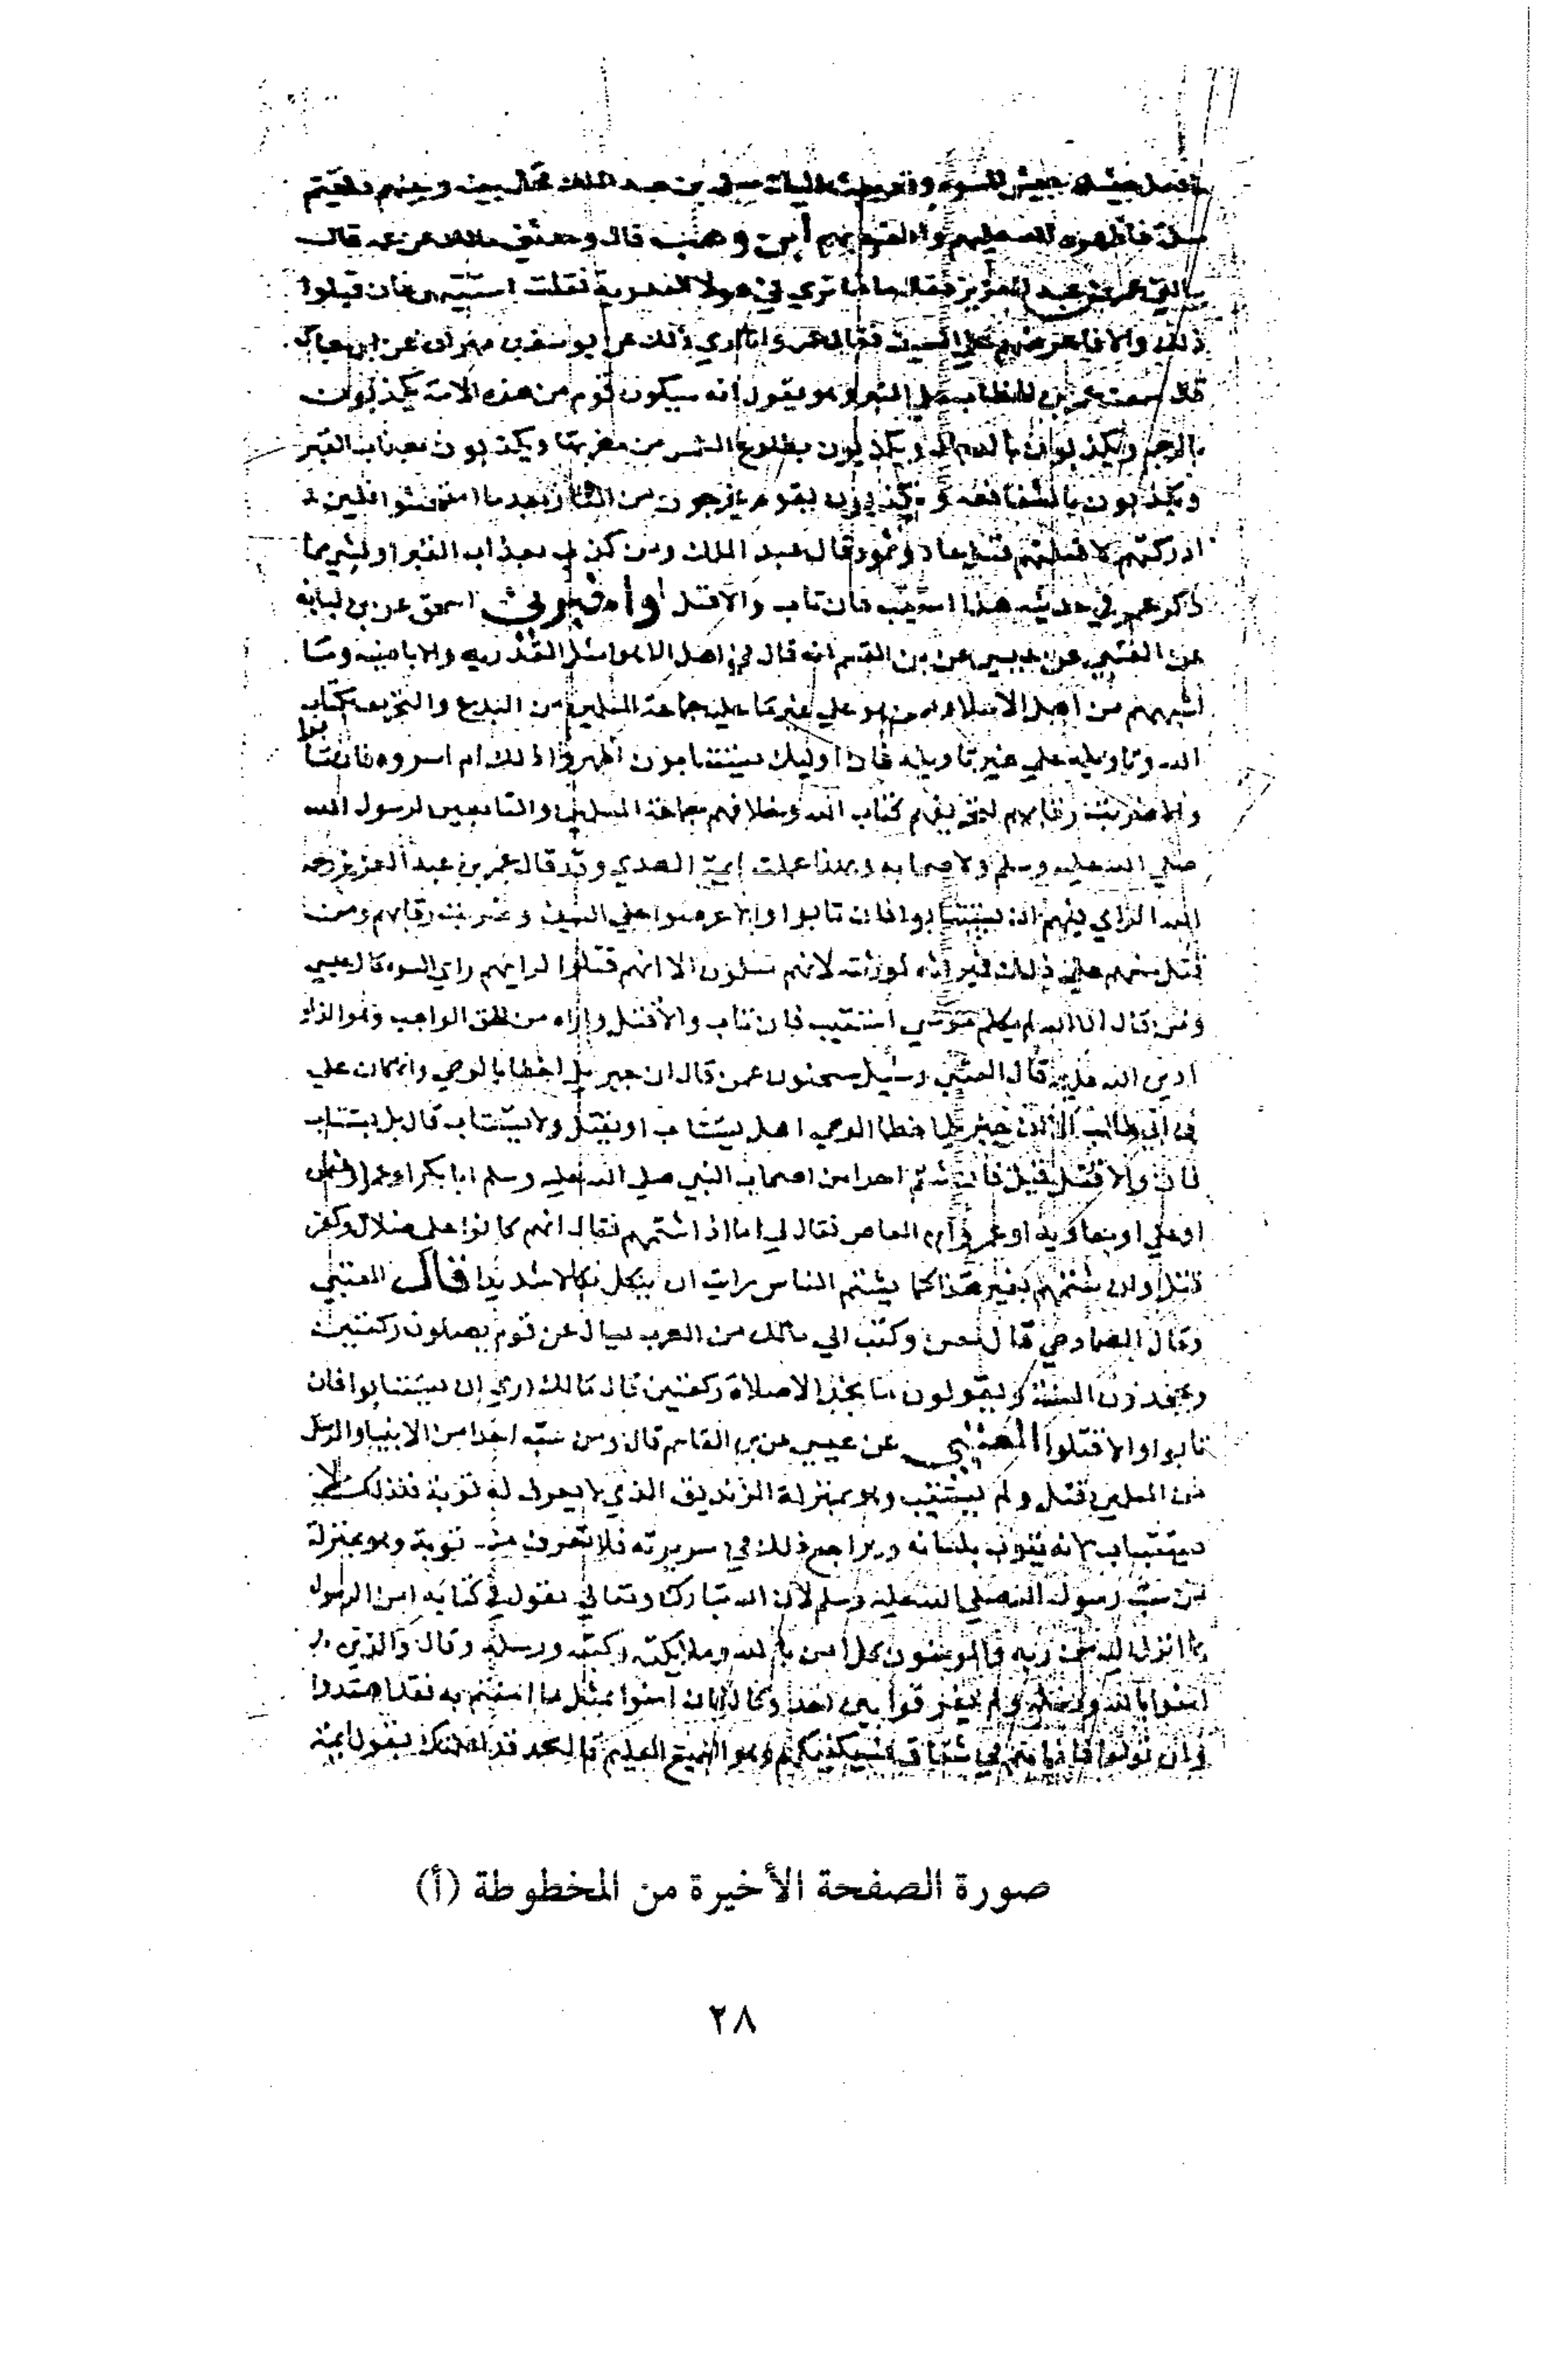 ابن وهب قال وحدثني مالك عن عمه قال
عمر بن عبد العزيز فقال ما ترى في هولا القدرية فقلت استتبهم فان قبلوا
ذلك والا فاعرضهم على السيف فقال عمر وانا ارى ذلك عن يوسف بن مهران عن ابن عباس
قال سمعت عمر بن الخطاب على المنبر وهو يقول انه سيكون قوم من هذه الامة يكذبون
بالرجم ويكذبون بالدجال ويكذبون بطلوع الشمس من مغربها ويكذبون بعذاب القبر
ويكذبون بالشفاعة ويكذبون بقوم يخرجون من النار بعد ما امتحشوا فلين
ادركتهم لاقتلنهم قتل عاد وثمود قال عبد الملك ومن كذب بعذاب القبر او بشي مما
ذكر عمر في حديثه هذا استتيب فان تاب والا قتل واخبرني اسحق عن بن لبابة
عن العتبي عن عيسى عن بن القسم انه قال في اهل الاهوا مثل القدرية والاباضية وما
اشبههم من اهل الاسلام ممن هو على غير ما عليه جماعة المسلمين من البدع والتحريف لكتاب
الله وتاويله على غير تاويله فان اوليك يستتابون اظهروا ذلك ام اسروه فان تابوا
والا ضربت رقابهم لتحريفهم كتاب الله وخلافهم جماعة المسلمين والتابعين لرسول الله
صلى الله عليه وسلم ولاصحابه وبهذا عملت ايمة الهدي وقد قال عمر بن عبد العزيز رحمه
الله الراي فيهم ان يستتابوا فان تابوا والا عرضوا على السيف وضربت رقابهم ومن
قتل منهم على ذلك فميراثه لورثته لانهم مسلمون الا انهم قتلوا لرايهم راي السوء قال عيسى
ومن قال ان الله لم يكلم موسى استتيب فان تاب والا قتل واراه من الحق الواجب وهو الذي
ادين الله عليه قال العتبي وسيل سحنون عمن قال ان جبريل اخطا بالوحي وانما كان علي
بن ابي طالب الا ان جبريل اخطا الوحي اهل يستتاب او يقتل ولا يستتاب قال بل يستتاب
فان والا قتل قيل فان شتم احدا من اصحاب النبي صلى الله عليه وسلم ابا بكر او عمر او عثمن
او علي او معاوية او عمرو بن العاص فقال لي اما اذا شتمهم فقال انهم كانوا على ضلال وكفر
قتل وان شتمهم بغير هذا كما يشتم الناس رايت ان ينكل نكالا شديدا قال العتبي
وقال الصمادحي قال معن وكتب الي مالك من العرب يسال عن قوم يصلون ركعتين
ويجحدون السنة ويقولون ما نجد الا صلاة ركعتين قال مالك ارى ان يستتابوا فان
تابوا والا قتلوا العتبي عن عيسى عن بن القاسم قال ومن سب احدا من الانبيا والرسل
من المسلمين قتل ولم يستتب وهو بمنزلة الزنديق الذي لا يعرف له توبة فلذلك لا
يستتاب لانه يتوب بلسانه ويراجع ذلك في سريرته فلا تعرف منه توبة وهو بمنزلة
من سب رسول الله صلى الله عليه وسلم لان الله تبارك وتعالى يقول في كتابه امن الرسول
بما انزل اليه من ربه والمومنون كل امن بالله وملايكته وكتبه ورسله وقال والذين
امنوا بالله ورسله ولم يفرقوا بين احد وقال فان امنوا بمثل ما امنتم به فقد اهتدوا
وان تولوا فانما هم في شقاق فسيكفيكهم وهو السميع العليم
صورة الصفحة الأخيرة من المخطوطة (أ)
٢٨